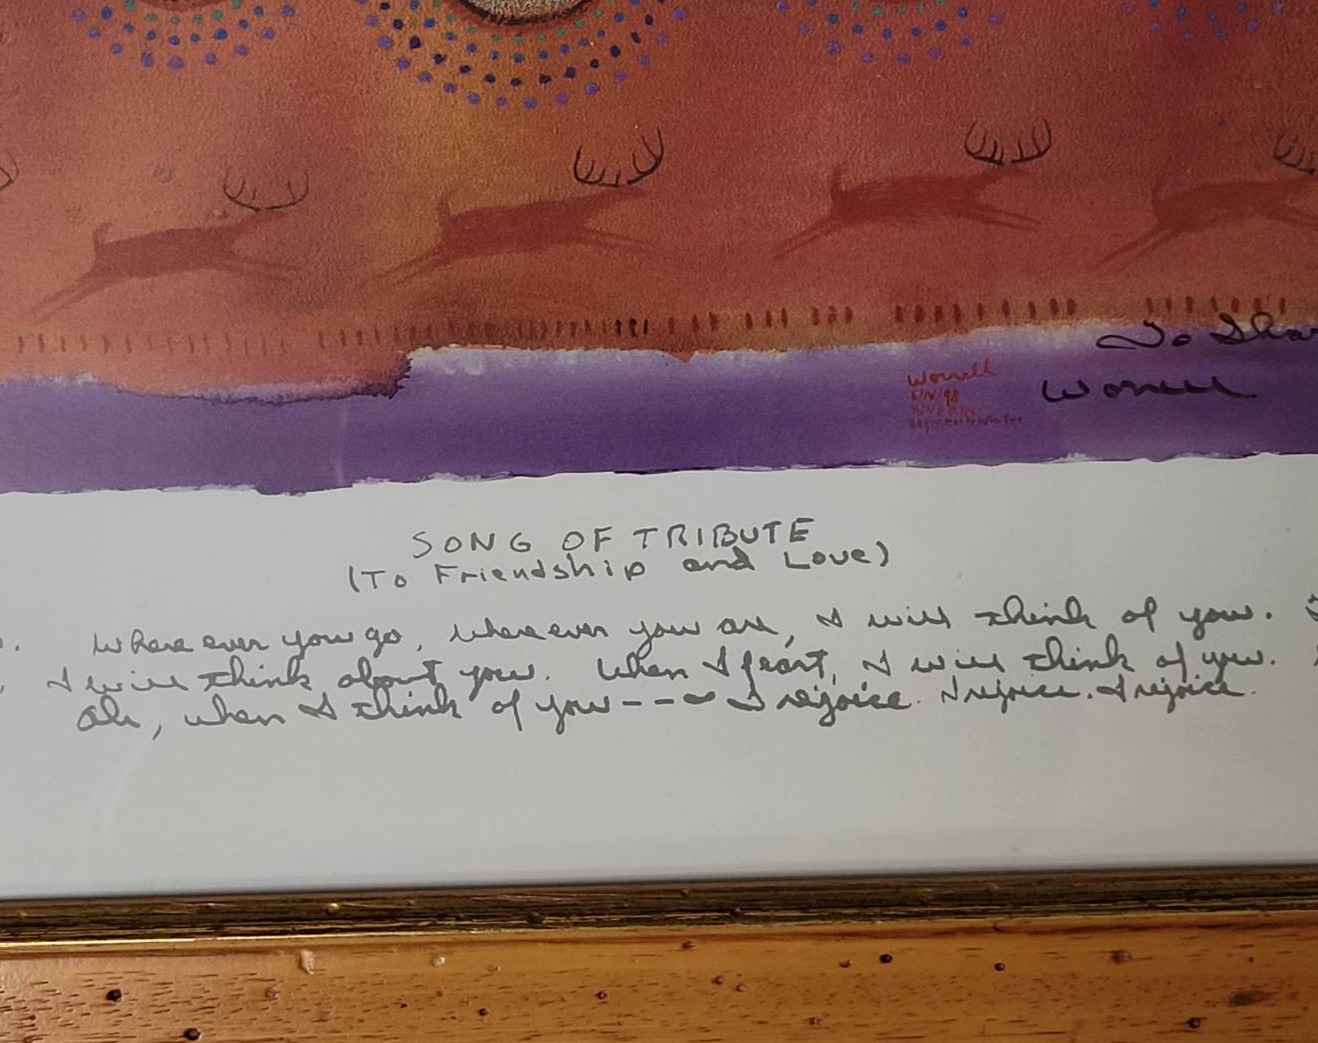 To Sha
Worrell
Worrell
SONG OF TRIBUTE
(To Friendship and Love)
Where ever you go, where ever you are, I will think of you.
I will think about you. When I feast, I will think of you.
Ah, when I think of you --- I rejoice. I rejoice. I rejoice.